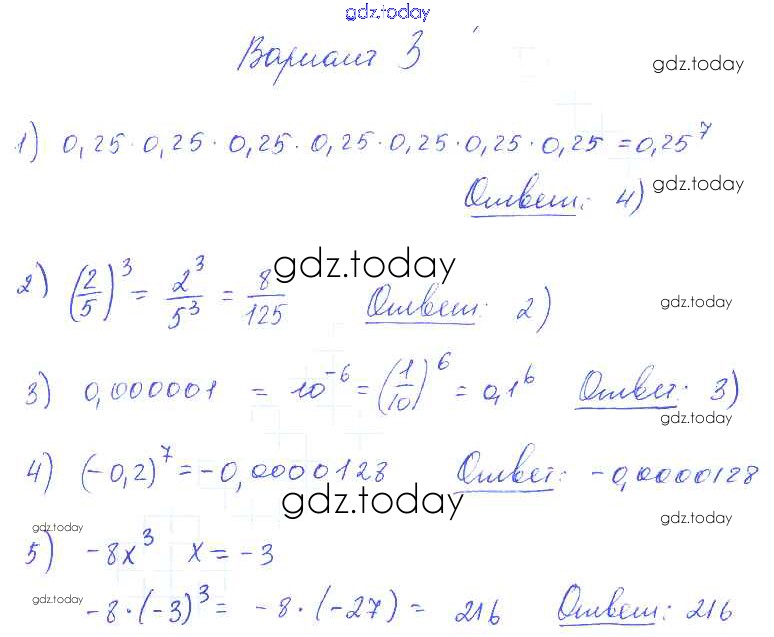 gdz.today
Вариант 3
gdz.today
1) 0,25 · 0,25 · 0,25 · 0,25 · 0,25 · 0,25 · 0,25 = 0,25^7
Ответ: 4)
gdz.today
2) (2/5)^3 = 2^3/5^3 = 8/125 Ответ: 2)
gdz.today
gdz.today
3) 0,000001 = 10^-6 = (1/10)^6 = 0,1^6 Ответ: 3)
gdz.today
4) (-0,2)^7 = -0,0000128 Ответ: -0,0000128
gdz.today
gdz.today
gdz.today
5) -8x^3 x = -3
gdz.today
-8 · (-3)^3 = -8 · (-27) = 216 Ответ: 216
gdz.today